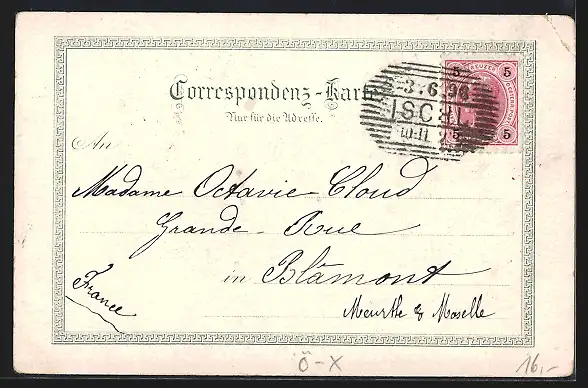 Correspondenz-Karte
Nur für die Adresse.
An
5 KREUZER 5
-3.6.98
ISCHL
10-11
5 5
Madame Octavie Cloud
Grande-Rue
in Blâmont
France
Meurthe & Moselle
Ö-X
16,-